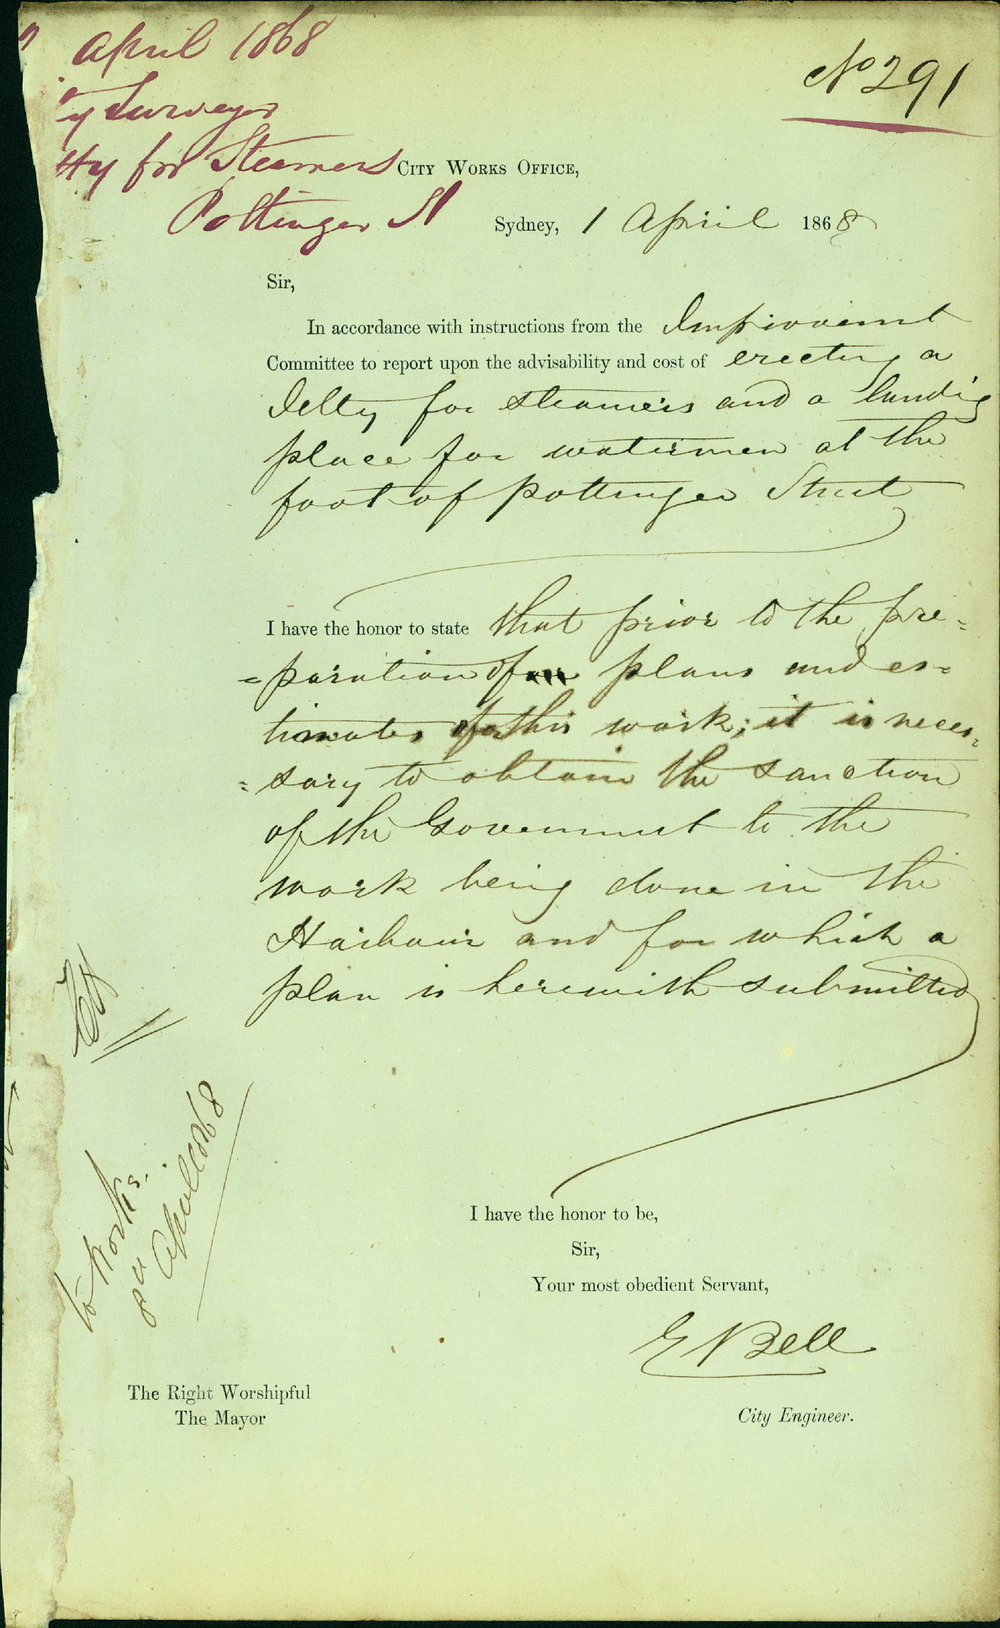 April 1868
No 291
y Surveyor
tty for Steamers
Pottinger St
CITY WORKS OFFICE,
Sydney, 1 April 1868
Sir,
In accordance with instructions from the Improvement
Committee to report upon the advisability and cost of erecting a
Jetty for steamers and a landing
place for watermen at the
foot of Pottinger Street
I have the honor to state that prior to the pre=
=paration of plans and es=
timates for this work; it is neces=
=sary to obtain the sanction
of the Government to the
work being done in the
Harbour and for which a
plan is herewith submitted
to Works.
8th April 1868
I have the honor to be,
Sir,
Your most obedient Servant,
E Bell
The Right Worshipful
The Mayor
City Engineer.